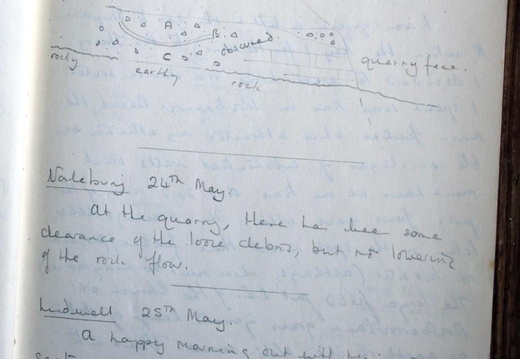 A
B
C
obscured
quarry face.
rocky
earthy
rock
24th May.
At the quarry, there has been some
clearance of the loose debris, but no lowering
of the rock floor.
Ludwell 25th May.
A happy morning out with